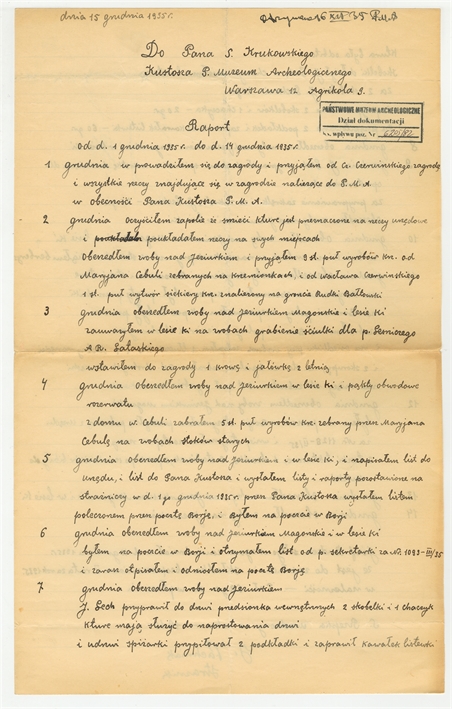 dnia 15 grudnia 1935r.
Otrzymano 16 XII 35 P.M.A
Do Pana S. Krukowskiego
Kustosza P. Muzeum Archeologicznego
Warszawa 12 Agrikola 9.
PAŃSTWOWE MUZEUM ARCHEOLOGICZNE
Dział dokumentacji
Ks. wpływu poz. Nr
Raport
od d. 1 grudnia 1935r. do d. 14 grudnia 1935r.
1 grudnia w prowadziłem się do zagrody i przyjąłem od Cz. Czerwińskiego zagrodę
i wszystkie rzeczy znajdujące się w zagrodzie należące do P.M.A.
w obecności Pana Kustosza P.M.A.
2 grudnia oczyściłem zapole ze śmieci kture jest przeznaczone na rzeczy urzędowe
i poukładałem rzeczy na swych miejscach
obeszedłem wroby nad Jeziurkiem i przyjąłem 3 śl. put wyrobów Krz. od
Maryjana Cebuli zebranych na Krzemionkach, i od Wacława Czerwińskiego
1 śl. put wytwór siekiery Krz. znaleziony na groncie Rudki Bałtowski
3 grudnia obeszedłem wroby nad Jeziurkiem Magonskie i w lesie Ki
zauważyłem w lesie Ki na wrobach grabienie ściułki dla p.
A.R. Sałaskiego
wstawiłem do zagrody 1 krowę i jałiwkę 2 letnią
4 grudnia obeszedłem wroby nad Jeziurkiem w lesie Ki i pakły obwodowe
rezerwatu
z domu w. Cebuli zabrałem 5 śl. put wyrobów Krz. zebrany przez Maryjana
Cebulę na wrobach stoków starych
5 grudnia obeszedłem wroby nad Jeziurkiem i w lesie Ki, i napisałem list do
Urzędu, i list do Pana Kustosza i wysłałem listy i raporty pozostawione na
strażnicy w d. 1go grudnia 1935r. przez Pana Kustosza wysłałem listem
poleconem przez pocztę Borję, i Byłem na poczcie w Borji
6 grudnia obeszedłem wroby nad Jeziurkiem Magonskie i w lesie Ki
byłem na poczcie w Borji i otrzymałem list od p. sekretarki za Nr. 1093-III/35
i zaraz odpisałem i odniosłem na pocztę Borję
7 grudnia obeszedłem wroby nad Jeziurkiem
J. Lech przyprawił do drzwi przedsionka wewnętrznych 2 skobelki i 1 chaczyk
kture mają służyć do naprostowania drzwi
i udrzwi spiżarki przypiłował 2 podkładki i zaprawił kawałek listewski